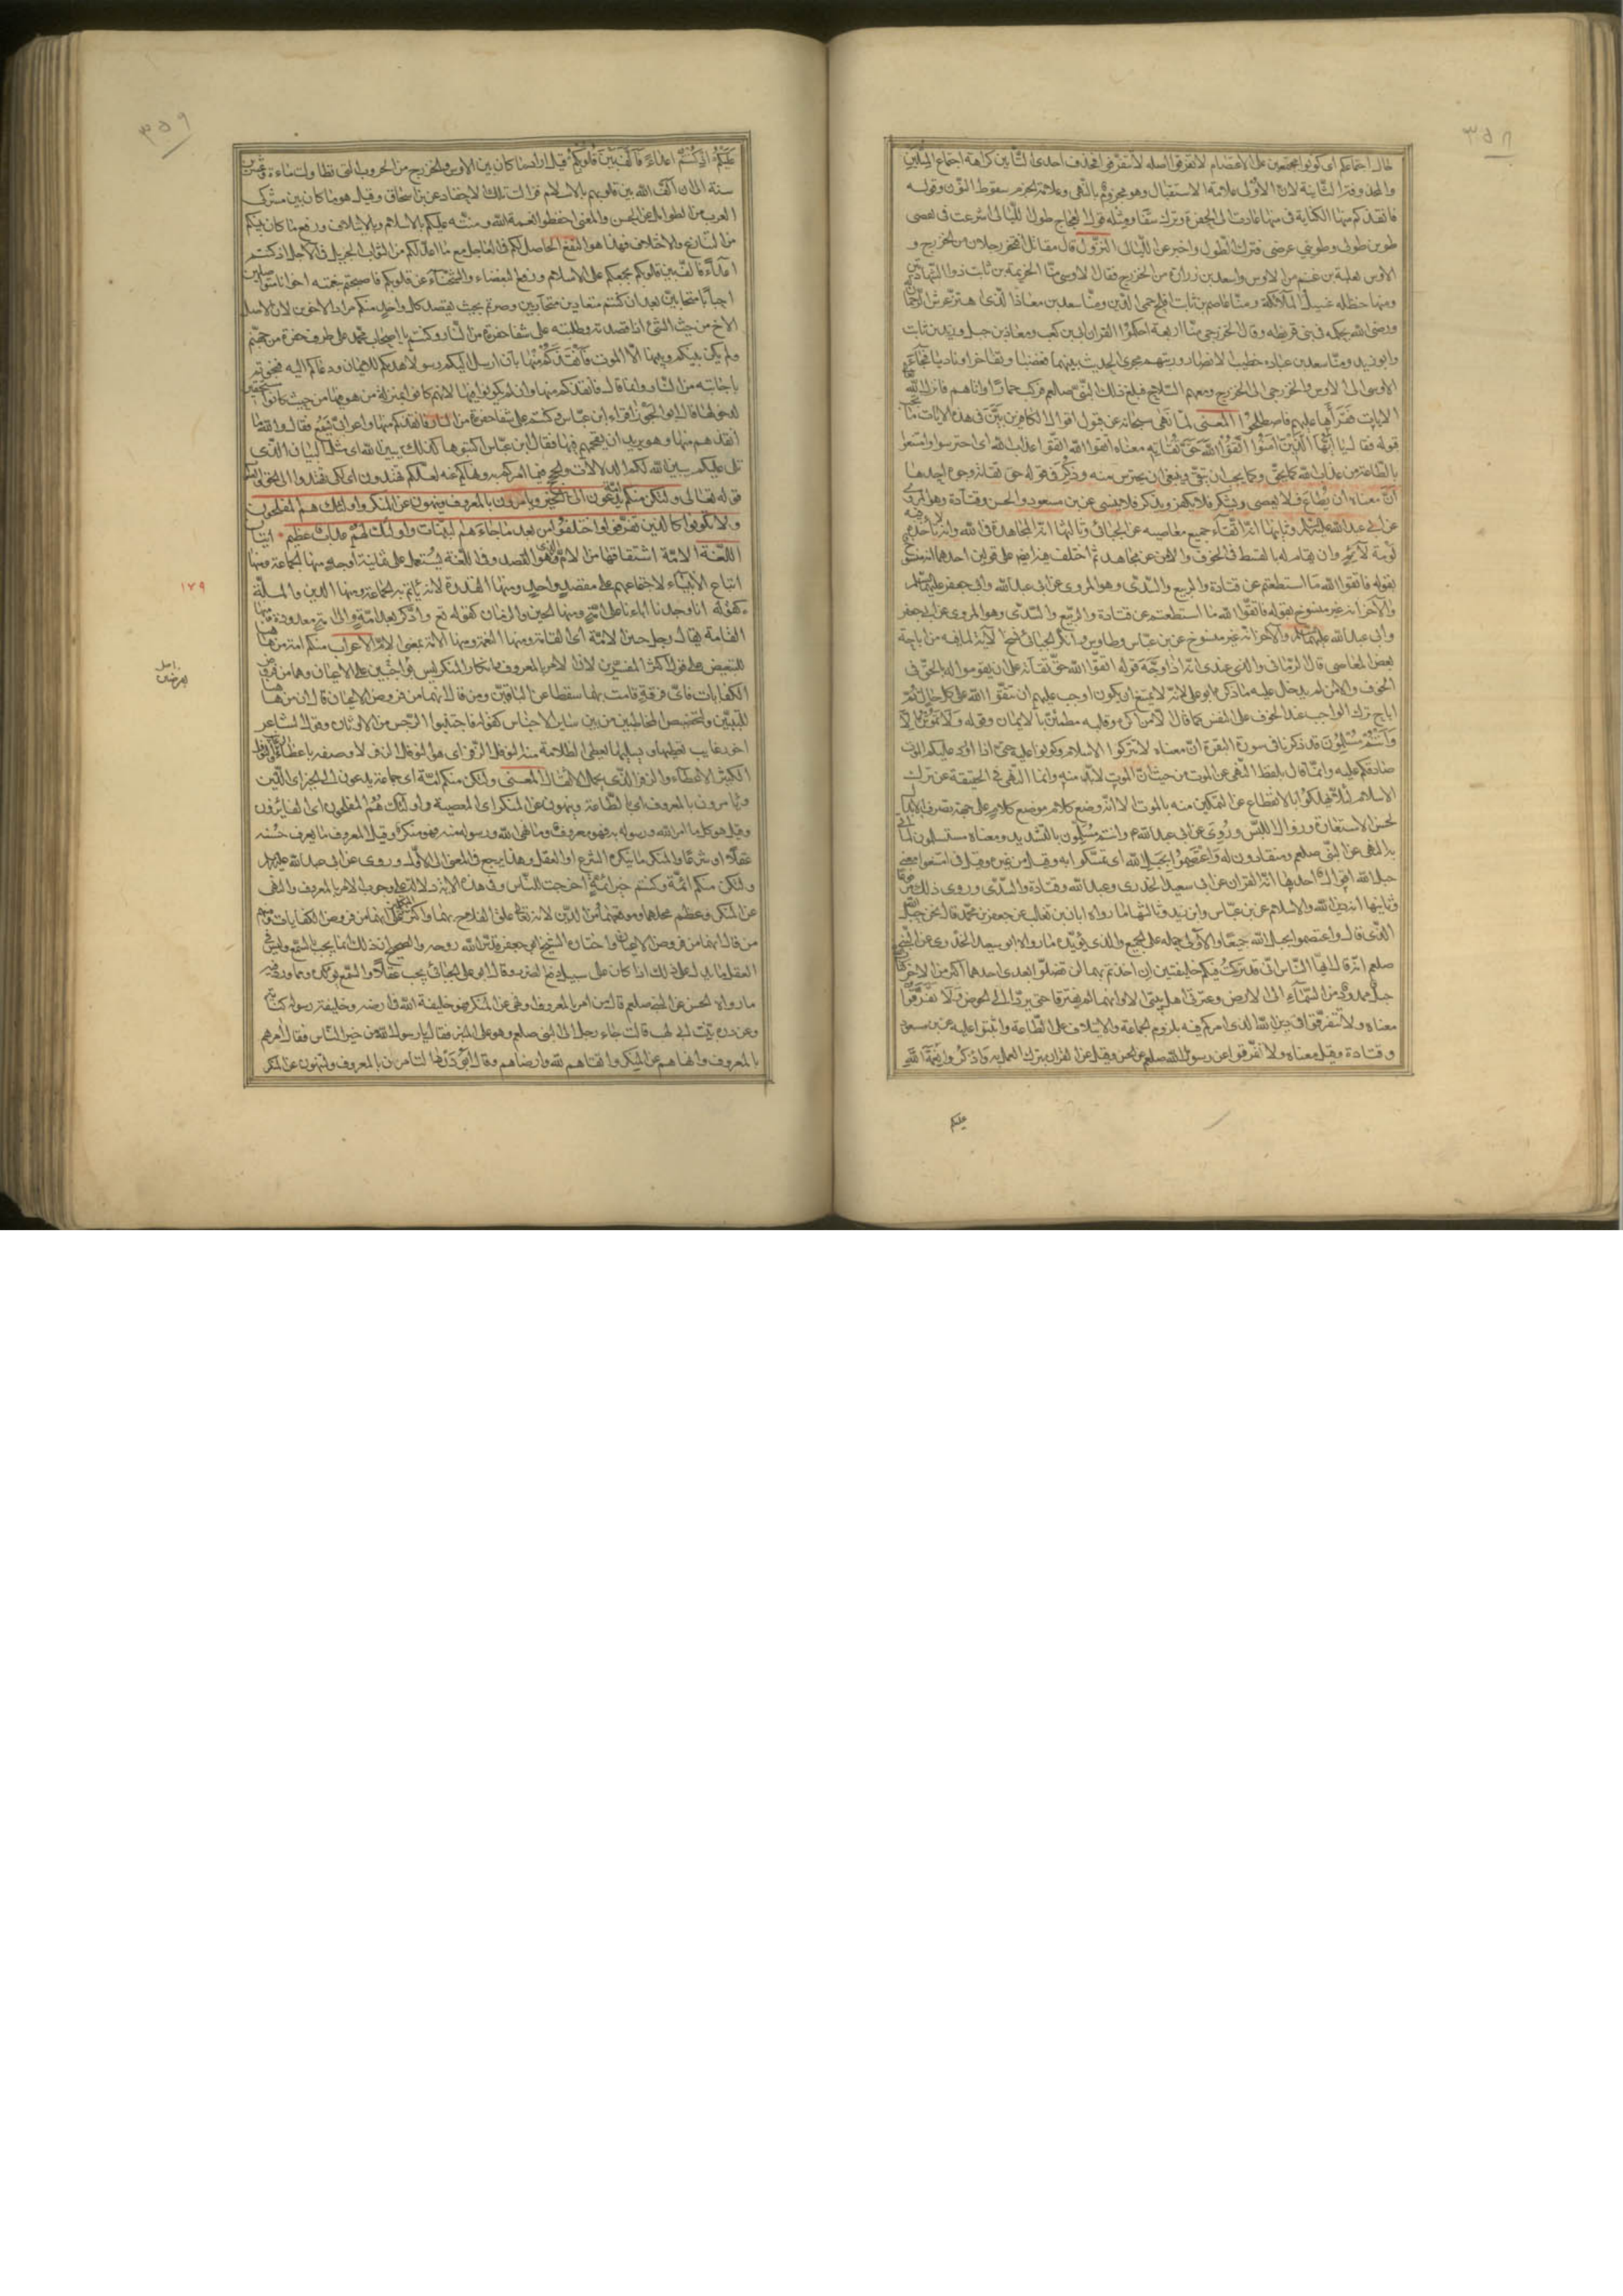 ٣٥٨
حال اجتماعكم اى كونوا مجتمعين على الاعتصام لا تفرقوا اصله لا تتفرقوا فحذف احدى التائين كراهة اجتماع المثلين
والمحذوفة الثانية لان الاولى علامة الاستقبال وهو مجزوم بالنهى وعلامة الجزم سقوط النون وقوله
فانقذكم منها الكناية فى منها عادت الى الحفرة وترك شفا ومثله قول العجاج طول الليالى اسرعت فى نقضى
طوين طولى وطوين عرضى فترك الطول واخبر عن الليالى النزول قال مقاتل افتخر رجلان من الخزرج و
الاوس ثعلبة بن غنم من الاوس واسعد بن زرارة من الخزرج فقال الاوسى منّا خزيمة بن ثابت ذو الشهادتين
ومنها حنظله غسيل الملائكة ومنّا عاصم بن ثابت بن افلح حمى الدين ومنّا سعد بن معاذ الّذى اهتز عرش الرحمن له
ورضى الله بحكمه فى بنى قريظه وقال الخزرجى منّا اربعة احكموا القران ابى بن كعب ومعاذ بن جبل وزيد بن ثابت
وابو زيد ومنّا سعد بن عباده خطيب الانصار ورئيسهم فجرى الحديث بينهما فغضبا وتفاخرا وناديا فجاء
الاوس الى الاوسى والخزرجى الى الخزرج ومعهم السلاح فبلغ ذلك النبى صلعم فركب حمارا واتاهم فانزل الله
الايات فقرأها عليهم فاصطلحوا المعنى لمّا نهى سبحانه عن قبول اقوال الكافرين بيّن فى هذه الايات ما يجب
قبوله فقال يا ايّها الذين امنوا اتقوا الله حقّ تقاته معناه اتقوا الله اتقوا عذاب الله اى احترسوا وامتنعوا
بالطاعة من عذاب الله كما يحق وكما يجب ان يتقى وينبغى ان يحترس منه وذكر فى قوله حق تقاته وجوه احدها
انّ معناه ان يطاع فلا يعصى ويشكر فلا يكفر ويذكر فلا ينسى عن بن مسعود والحسن وقتادة وهو المروى
عن ابى عبد الله عليه السلم وثانيها انه اتّقاء جميع معاصيه عن الجبائى وثالثها انه المجاهدة فى الله وان لا تأخذه فيه
لومة لائم وان يقام له بالقسط فى الخوف والامن عن مجاهد ثم اختلف فيه ايضا على قولين احدهما انه منسوخ
بقوله فاتقوا الله ما استطعتم عن قتادة والربيع والسّدّى وهو المروى عن ابى عبد الله وابى جعفر عليهما السلم
والآخر انه غير منسوخ بقوله فاتقوا الله ما استطعتم عن قتادة والربيع والسّدّى وهو المروى عن ابى جعفر
وابى عبد الله عليهما السلم والآخر انه غير منسوخ عن بن عباس وطاوس وانكر الجبائى نسخ الآية لما فيه من اباحة
بعض المعاصى قال الرمانى والذى عندى انه اذا وجّه قوله اتقوا الله حقّ تقاته على ان يقوموا له بالحق فى
الخوف والامن لم يدخل عليه ما ذكره ابو على لانه لا يمتنع ان يكون اوجب عليهم ان يتّقوا الله على كل حال ثم
اباح ترك الواجب عند الخوف على النفس كما قال الا من اكره وقلبه مطمئن بالايمان وقوله ولا تموتنّ الّا
وانتم مسلمون قد ذكرنا فى سورة البقرة انّ معناه لا تتركوا الاسلام وكونوا عليه حتى اذا ورد عليكم الموت
صادفكم عليه وانما قال بلفظ النهى عن الموت من حيث ان الموت لا بد منه وانما النهى فى الحقيقة عن ترك
الاسلام لئلّا يهلكوا بالانقطاع عن التمكين منه بالموت الا انه وضع كلام موضع كلام على جهة تصرف الابدال
لحسن الاستعارة وزوال اللبس وروى عن ابى عبد الله ع وانتم مسلمون بالتشديد ومعناه مستسلمون لما اتى
به النبى صلعم ومنقادون له واعتصموا بحبل الله اى تمسكوا به وقيل امتنعوا به من غيره وقيل فى معنى
حبل الله اقوال احدها انه القران عن ابى سعيد الخدرى وعبد الله وقتادة والسّدّى وروى ذلك مرفوعا
وثانيها انه دين الله والاسلام عن بن عباس وابن زيد وثالثها ما رواه ابان بن تغلب عن جعفر بن محمد قال نحن حبل الله
الذى قال واعتصموا بحبل الله جميعا والاولى حمله على الجميع والذى يؤيده ما رواه ابو سعيد الخدرى عن النبى
صلعم انه قال ايها الناس انّى قد تركت فيكم خليفتين ان اخذتم بهما لن تضلّوا بعدى احدهما اكبر من الاخر كتاب الله
حبل ممدود من السماء الى الارض وعترتى اهل بيتى الا وانهما لن يفترقا حتى يردا الىّ الحوض ولا تفرّقوا
معناه ولا تتفرقوا فى دين الله الذى امركم فيه بلزوم الجماعة والايتلاف على الطّاعة واثبتوا عليه عن بن مسعود
وقتادة وقيل معناه ولا تفرقوا عن رسول الله صلعم عن الحسن وقيل عن القران بترك العمل به واذكروا نعمة الله
عليكم
٣٥٩
عليكم اذ كنتم اعداء فالّف بين قلوبكم قيل اراد ما كان بين الاوس والخزرج من الحروب التى تطاولت مائة وعشرين
سنة الى ان الّف الله بين قلوبهم بالاسلام فزالت تلك الاحقاد عن بن اسحاق وقيل هو ما كان بين مشركى
العرب من الطوائل عن الحسن والمعنى احفظوا نعمة الله ومنّته عليكم بالاسلام وبالايتلاف ورفع ما كان بينكم
من التنازع والاختلاف فهذا هو النفع الحاصل لكم فى العاجل مع ما اعدّ لكم من الثواب الجزيل فى الآجل اذ كنتم
اعداء فالّف بين قلوبكم بجمعكم على الاسلام ورفع البغضاء والشحناء عن قلوبكم فاصبحتم بنعمته اخوانا متواصلين
احبابا متحابين بعد ان كنتم متعادين متحاربين وصرتم بحيث يقصد كل واحد منكم مراد الاخر لان اصل
الاخ من حيث الشئ اذا قصدته وطلبته على شفا حفرة من النار وكنتم يا اصحاب محمد على طرف حفرة من جهنم
ولم يكن بينكم وبينها الا الموت فانقذكم منها بان ارسل اليكم رسولا هداكم للايمان ودعاكم اليه فنجوتم
باجابته من النار وانما قال فانقذكم منها وان لم يكونوا فيها لانهم كانوا بمنزلة من هو فيها من حيث كانوا مستحقين
لدخولها قال ابو الجوزاء قراء ابن عباس وكنتم على شفا حفرة من النار فانقذكم منها واعرابى يسمع فقال والله ما
انقذهم منها وهو يريد ان يقحمهم فيها فقال ابن عباس اكتبوها كذلك يبين الله اى مثل البيان الذى
تلى عليكم يبين الله لكم الدلالات والحجج فيما امركم به ونهاكم عنه لعلكم تهتدون اى لكى تهتدوا الى الحق
قوله تعالى ولتكن منكم امة يدعون الى الخير ويامرون بالمعروف وينهون عن المنكر واولئك هم المفلحون
ولا تكونوا كالذين تفرقوا واختلفوا من بعد ما جاءهم البينات واولئك لهم عذاب عظيم ايتان
اللغة الامة اشتقاقها من الامّ الذى هو القصد وفى اللغة يستعمل على ثمانية اوجه منها الجماعة ومنها
اتباع الانبياء لاجتماعهم على مقصد واحد ومنها القدوة لانه ياتم به الجماعة ومنها الدين والملّة
كقوله انا وجدنا اباءنا على امة ومنها الحين والزمان كقوله تع وادّكر بعد امّة والى امة معدودة ومنها
القامة يقال رجل حسن الامّة اى القامة ومنها النعمة ومنها الامة بمعنى الام الاعراب منكم امة من ههنا
للتبعيض على قول اكثر المفسرين لان الامر بالمعروف وانكار المنكر ليس بواجبين على الاعيان وهما من فروض
الكفايات فاىّ فرقة قامت بهما سقطا عن الباقين ومن قال انهما من فروض الاعيان قال ان من ههنا
للتبيين ولتخصيص المخاطبين من بين ساير الاجناس كقوله فاجتنبوا الرجس من الاوثان وقول الشاعر
اخو رغايب يعطيها ويسلبها يعطى الظلامة منه النوفل الزفر اى هو النوفل الزفر لانه وصفه باعطاء الرغايب والنوفل
الكثير الاعطاء والزفر الذى يحمل الاثقال المعنى ولتكن منكم امّة اى جماعة يدعون الى الخير اى الدين
ويامرون بالمعروف اى بالطاعة وينهون عن المنكر اى المعصية واولئك هم المفلحون اى الفايزون
وقيل هو كل ما امر الله ورسوله به فهو معروف وما نهى الله ورسوله عنه فهو منكر وقيل المعروف ما يعرف حسنه
عقلا او شرعا والمنكر ما ينكره الشرع او العقل وهذا يرجع فى المعنى الى الاول وروى عن ابى عبد الله عليه السلم
ولتكن منكم ائمّة وكنتم خير ائمة اخرجت للناس وفى هذه الاية دلالة على وجوب الامر بالمعروف والنهى
عن المنكر وعظم محلهما وموقعهما من الدين لانه تعالى علق الفلاح بهما واكثر المتكلمين على انهما من فروض الكفايات ومنهم
من قال انهما من فروض الاعيان واختاره الشيخ ابو جعفر قدس الله روحه والصحيح ان ذلك انما يجب السمع وليس فى
العقل ما يدل على ذلك الا اذا كان على سبيل دفع الضرر وقال ابو على الجبائى يجب عقلا والسمع يؤكده ومما ورد فيه
ما رواه الحسن عن النبى صلعم قال من امر بالمعروف ونهى عن المنكر فهو خليفة الله فى ارضه وخليفة رسوله كتابه
وعن درة بنت ابى لهب قالت جاء رجل الى النبى صلعم وهو على المنبر فقال يا رسول الله من خير الناس فقال امرهم
بالمعروف وانهاهم عن المنكر واتقاهم لله وارضاهم وقال ابو الدرداء لتامرن بالمعروف ولتنهون عن المنكر
١٧٩